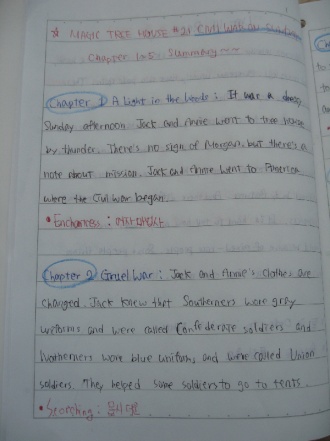 ☆ MAGIC TREE HOUSE #21 Civil War on Sunday
Chapter 1~5 Summary ~~
Chapter 1 A Light in the Woods : It was a
Sunday afternoon Jack and Annie went to tree house
by thunder. There's no sign of Morgan. but there's a
note about mission. Jack and Annie went to America
where the Civil War began.
• Enchantress : 여자마법사
Chapter 2 Cruel War : Jack and Annie's Clothes are
changed. Jack knew that Southerners wore gray
uniforms and were called Confederate soldiers and
Northerners wore blue uniforms, and were called Union
soldiers. They helped some soldiers to go to tents.
• Scorching :